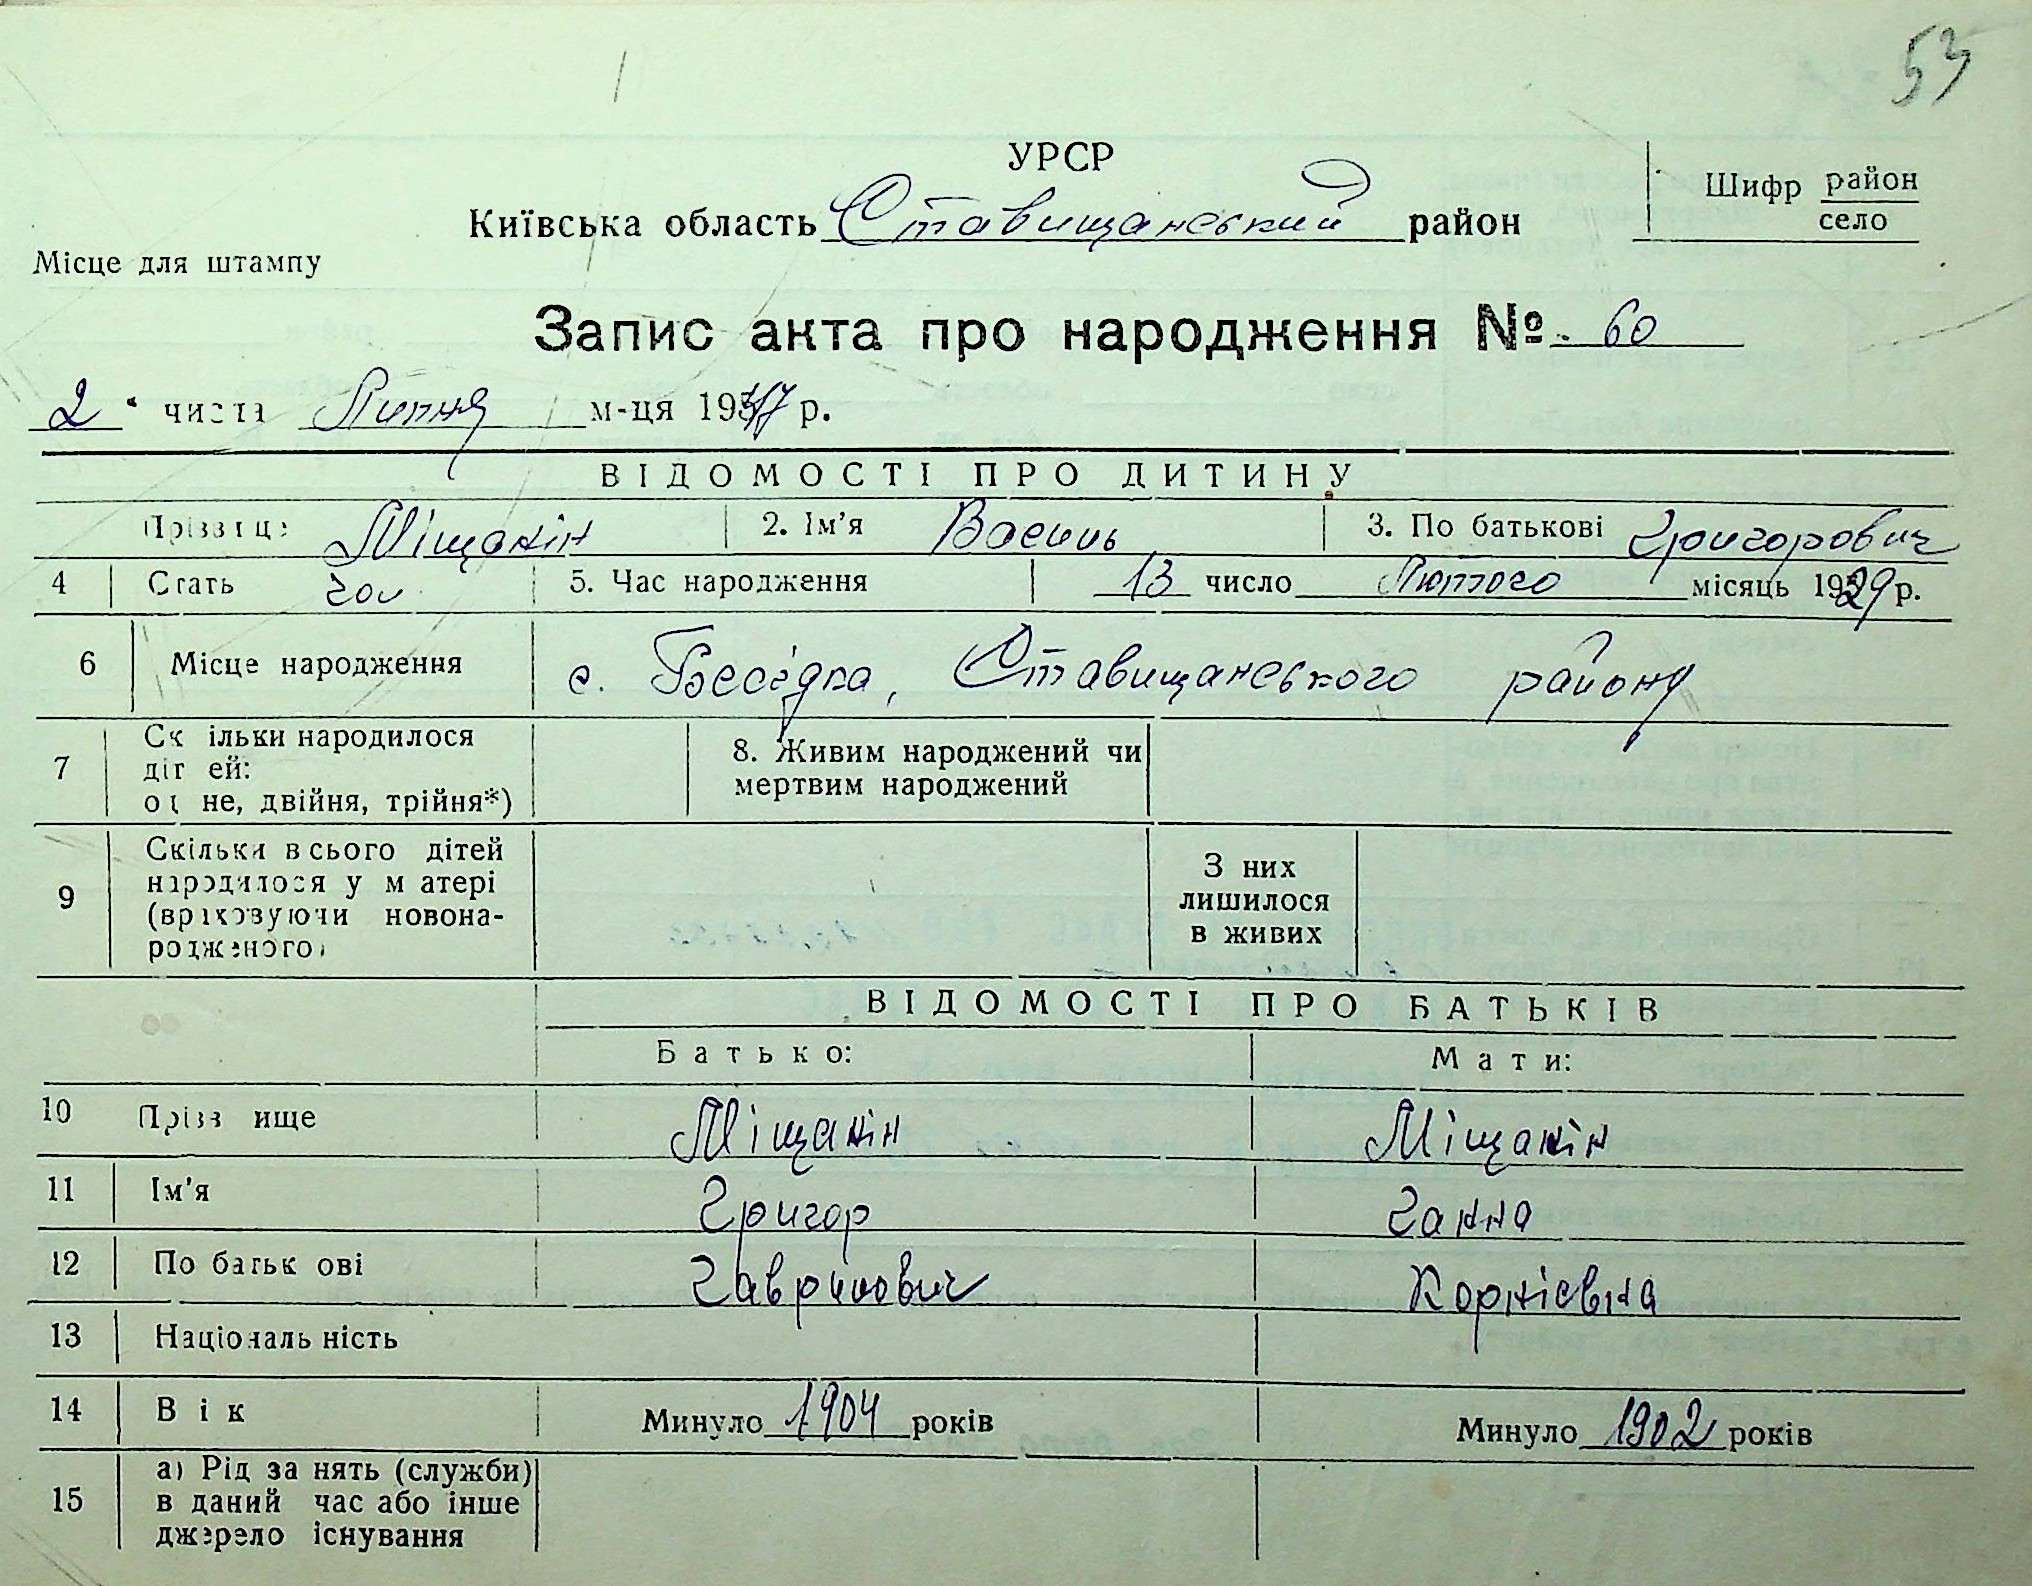 53
УРСР
Київська область Ставищанський район
Шифр район
село
Місце для штампу
Запис акта про народження № 60
2 " числа Липня м-ця 1947 р.
ВІДОМОСТІ ПРО ДИТИНУ
Прізвище Міщанін 2. Ім'я Василь 3. По батькові Григорович
4 Стать чол 5. Час народження 13 число Лютого місяць 1929 р.
6 Місце народження с. Бесідка, Ставищанського району
7 Скільки народилося дітей: одне, двійня, трійня*) 8. Живим народжений чи мертвим народжений
9 Скільки всього дітей народилося у матері (враховуючи новонародженого) З них лишилося в живих
ВІДОМОСТІ ПРО БАТЬКІВ
Батько: Мати:
10 Прізвище Міщанін Міщанін
11 Ім'я Григор Ганна
12 По батькові Гаврилович Корнієвна
13 Національність
14 Вік Минуло 1904 років Минуло 1902 років
15 а) Рід занять (служби) в даний час або інше джерело існування